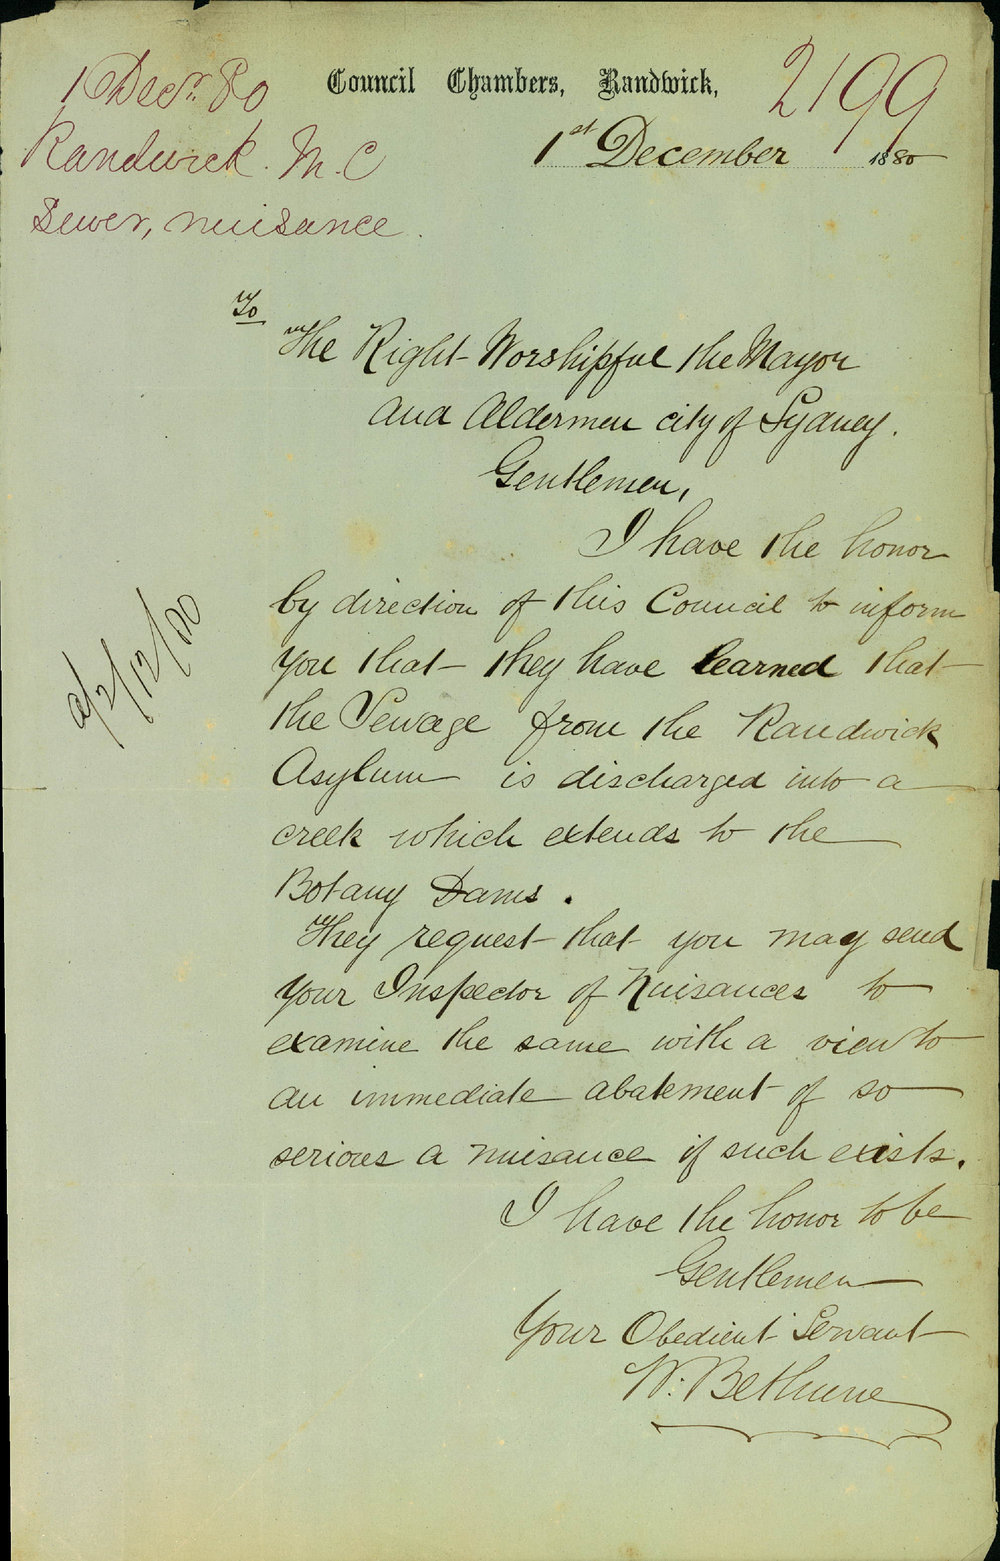 1 Decr. 80
Randwick. M. C
Sewer, nuisance.
2199
Council Chambers, Randwick,
1st December 1880
To
The Right Worshipful the Mayor
and Aldermen city of Sydney.
Gentlemen,
I have the honor
by direction of this Council to inform
you that they have learned that
the Sewage from the Randwick
Asylum is discharged into a
creek which extends to the
Botany Dams.
They request that you may send
your Inspector of Nuisances to
examine the same with a view to
an immediate abatement of so
serious a nuisance if such exists.
I have the honor to be
Gentlemen
Your Obedient Servant
W. Bethune